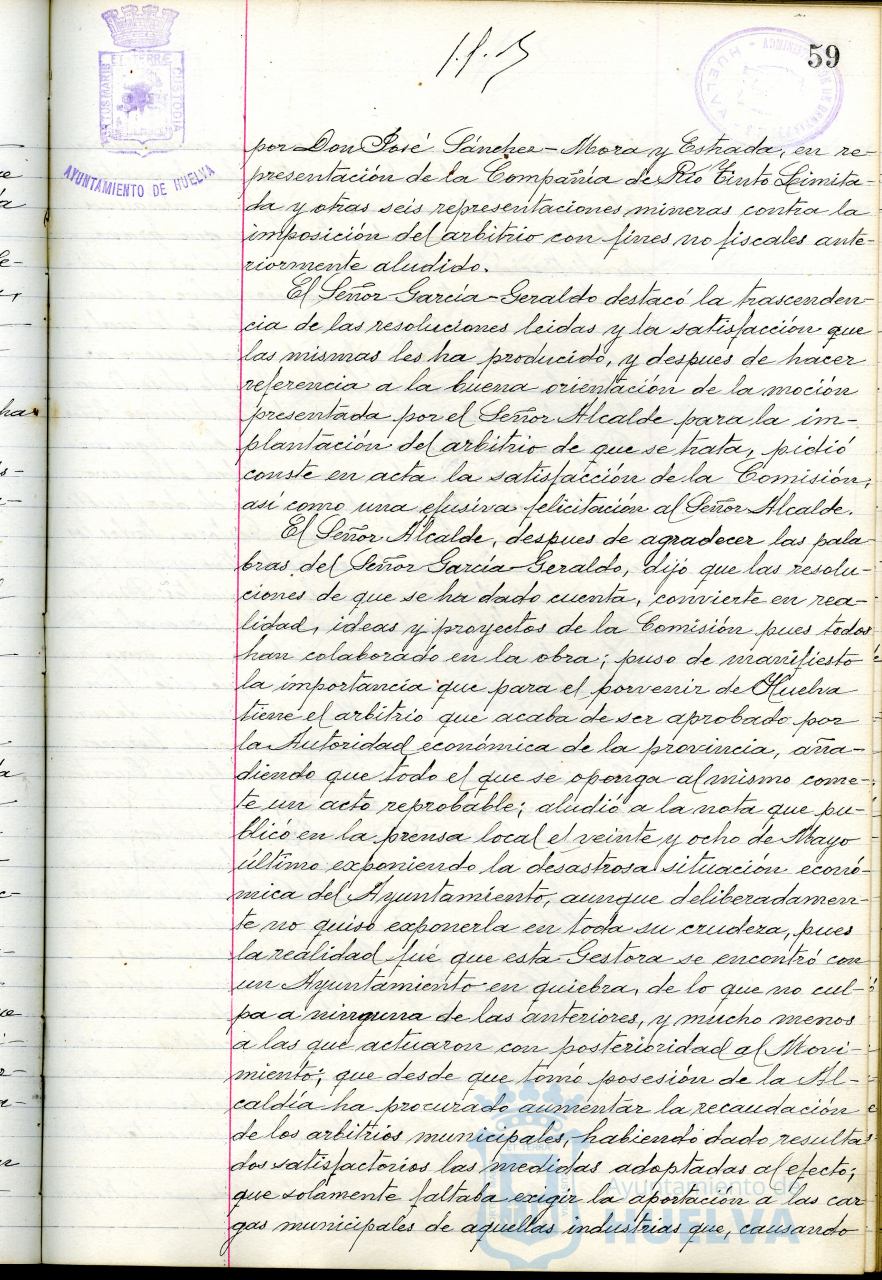 59
PORTUS MARIS ET TERRÆ CUSTODIA
AYUNTAMIENTO DE HUELVA
HUELVA
por Don José Sánchez-Mora y Estrada, en re-
presentación de la Compañía de Río Tinto Limita-
da y otras seis representaciones mineras contra la
imposición del arbitrio con fines no fiscales ante-
riormente aludido.
El Señor García-Geraldo destacó la trascenden-
cia de las resoluciones leidas y la satisfacción que
las mismas les ha producido, y despues de hacer
referencia a la buena orientación de la moción
presentada por el Señor Alcalde para la im-
plantación del arbitrio de que se trata, pidió
conste en acta la satisfacción de la Comisión,
así como una efusiva felicitación al Señor Alcalde.
El Señor Alcalde, despues de agradecer las pala
bras del Señor García-Geraldo, dijó que las resolu-
ciones de que se ha dado cuenta, convierte en rea-
lidad, ideas y proyectos de la Comisión pues todos
han colaborado en la obra; puso de manifiesto
la importancia que para el porvenir de Huelva
tiene el arbitrio que acaba de ser aprobado por
la Autoridad económica de la provincia, aña-
diendo que todo el que se oponga al mismo come-
te un acto reprobable; aludió a la nota que pu-
blicó en la prensa local el veinte y ocho de Mayo
último exponiendo la desastrosa situación econó-
mica del Ayuntamiento, aunque deliberadamen-
te no quiso exponerla en toda su crudeza, pues
la realidad fué que esta Gestora se encontró con
un Ayuntamiento en quiebra, de lo que no cul-
pa a ninguna de las anteriores, y mucho menos
a las que actuaron con posterioridad al Movi-
miento; que desde que tomó posesión de la Al-
caldía ha procurado aumentar la recaudación
de los arbitrios municipales, habiendo dado resulta
dos satisfactorios las medidas adoptadas al efecto;
que solamente faltaba exigir la aportación a las car
gas municipales de aquellas industrias que, causando
Ayuntamiento de
HUELVA